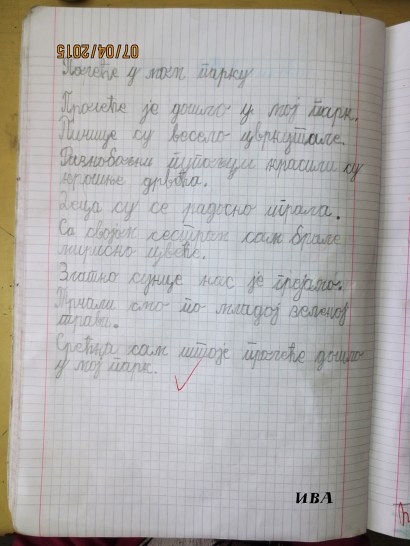 07/04/2015
Пролеће у мом парку
Пролеће је дошло у мој парк.
Птице су весело цвркутале.
Разнобојни пупољци красили су
крошње дрвећа.
Деца су се радосно играла.
Са својом сестром сам брале
мирисно цвеће.
Златно сунце нас је грејало.
Трчали смо по младој зеленој
трави.
Срећна сам што је пролеће дошло
у мој парк.
ИВА